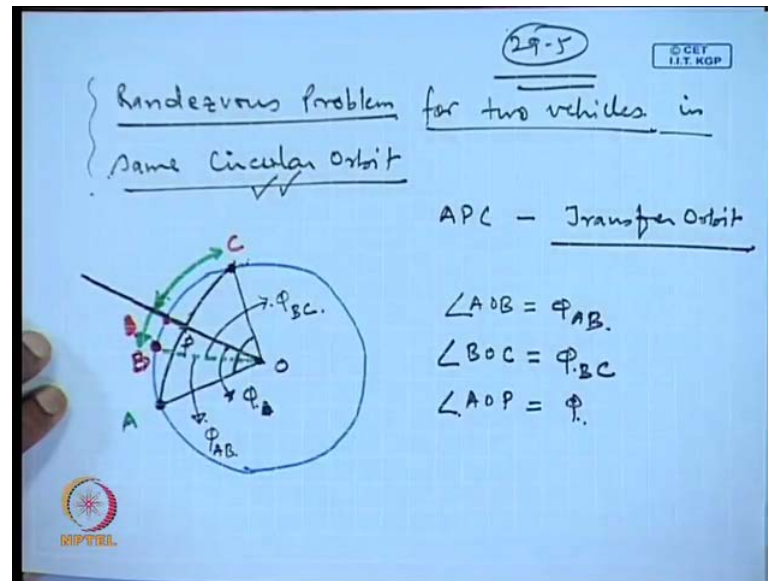 29-5
© CET
I.I.T. KGP
Randezvous Problem for two vehicles in
same Circular Orbit
APC - Transfer Orbit
C
φBC.
∠AOB = φAB.
B
P
O
∠BOC = φBC
A
φ
∠AOP = φ.
φAB.
NPTEL